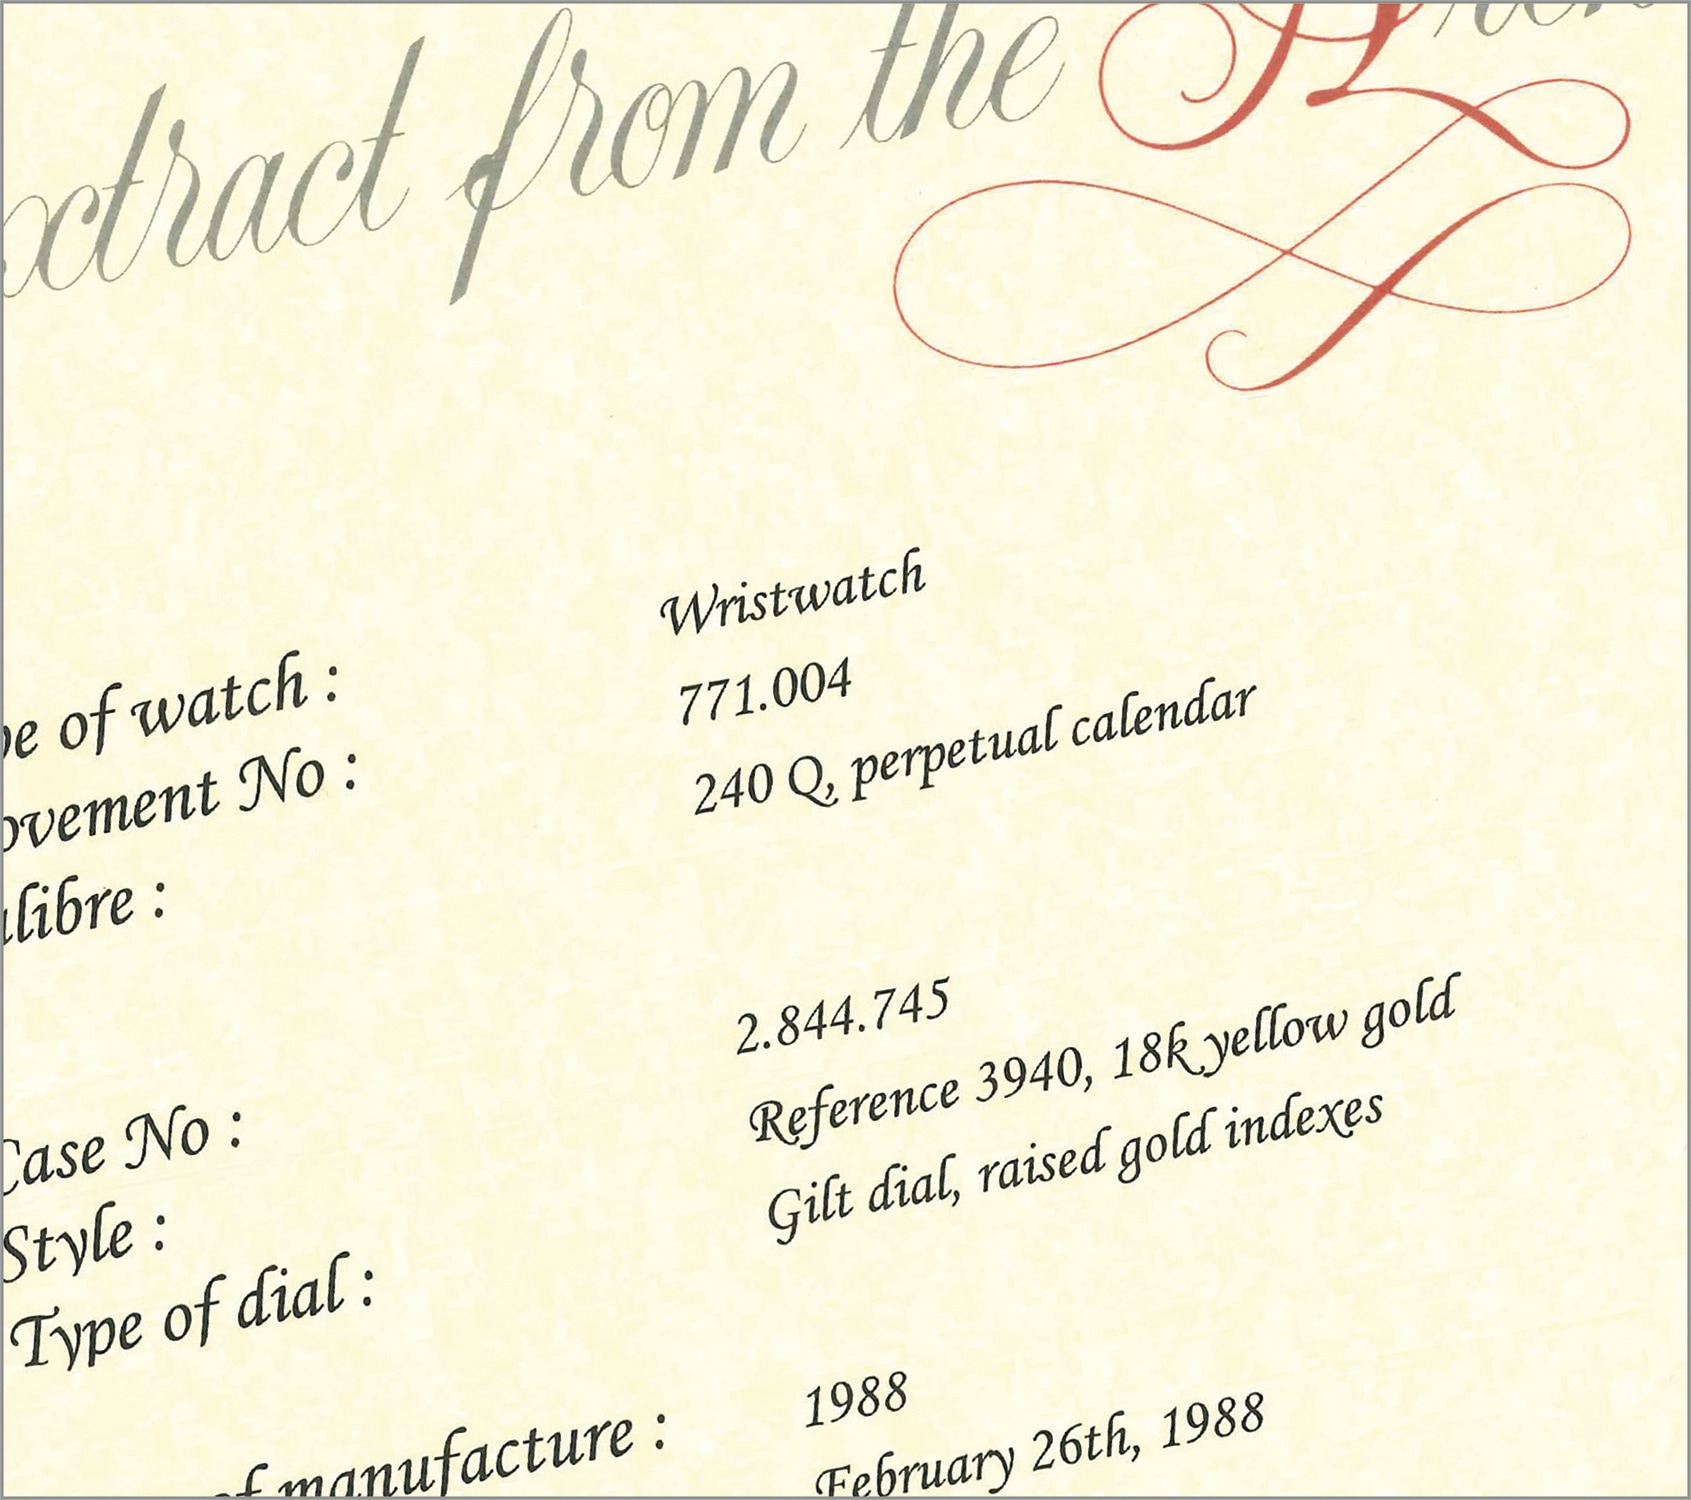 xtract from the
Wristwatch
pe of watch :
771.004
ovement No :
240 Q, perpetual calendar
alibre :
2.844.745
Case No :
Reference 3940, 18k yellow gold
Style :
Gilt dial, raised gold indexes
Type of dial :
1988
of manufacture :
February 26th, 1988